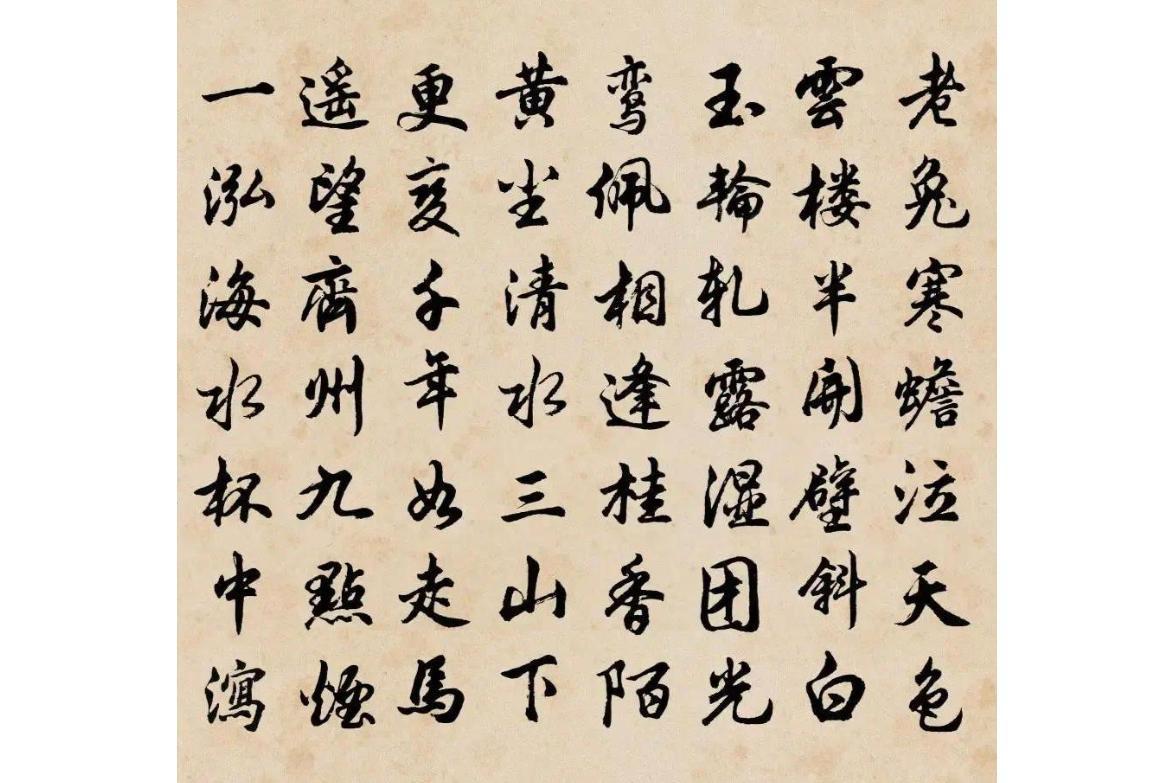 老兔寒蟾泣天色
雲楼半開壁斜白
玉輪軋露濕团光
鸾佩相逢桂香陌
黄尘清水三山下
更变千年如走馬
遥望齊州九點煙
一泓海水杯中瀉